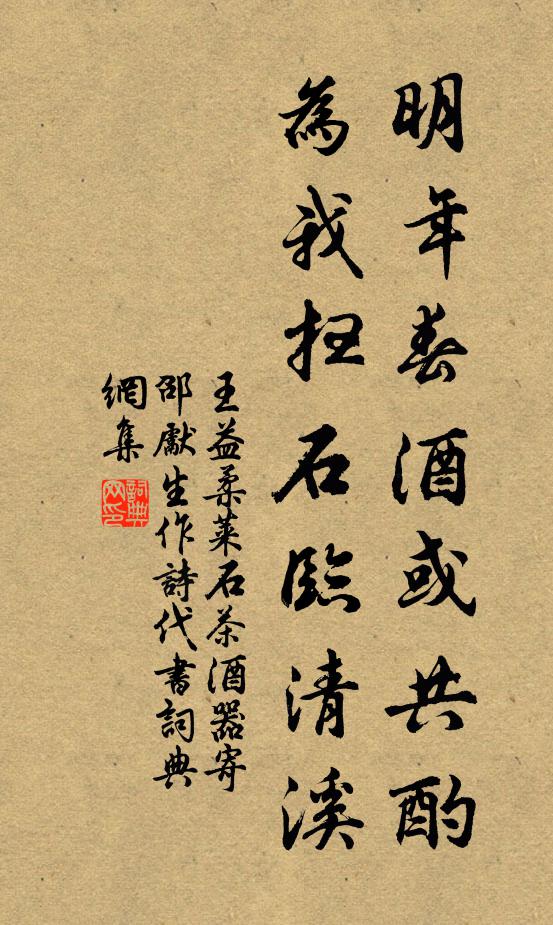 明年春酒或共酌
為我扫石臨清溪
王益柔萊石茶酒器寄
邵獻生作詩代書詞典
網集
詞典
网印